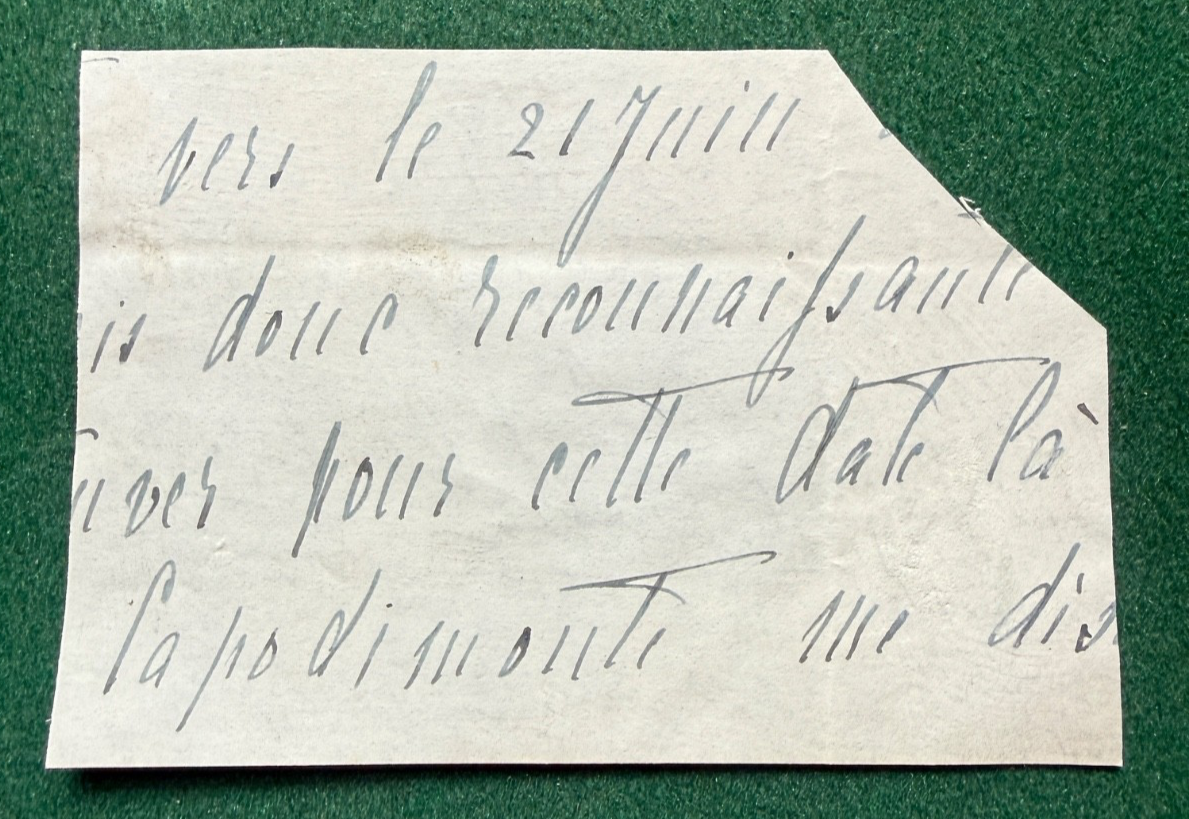 vers le 21 Juill
is donc reconnaissante
uver pour cette date là
Capodimonte me dis